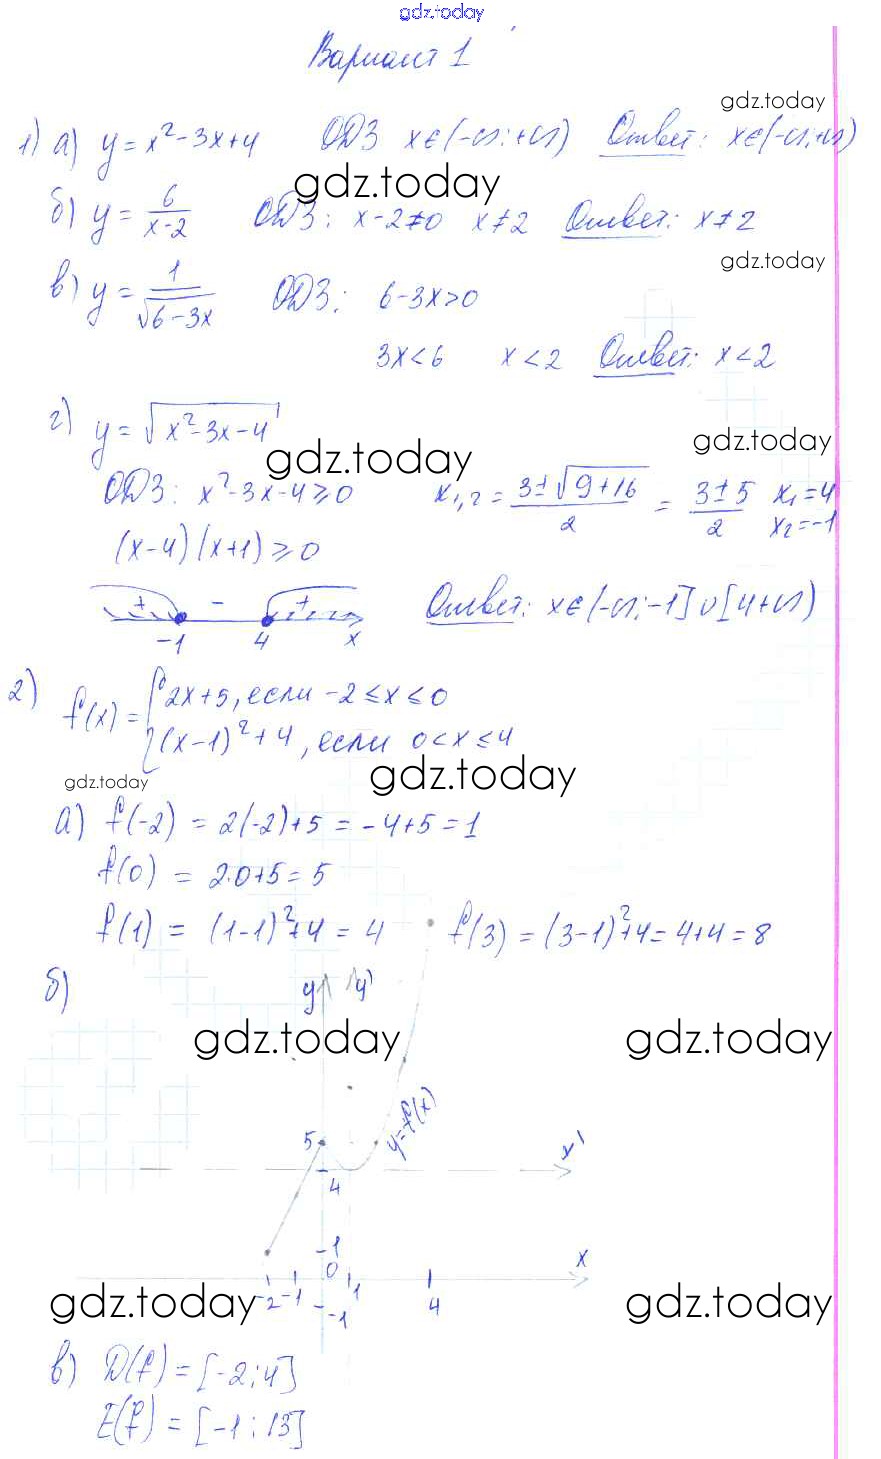 gdz.today
Вариант 1
gdz.today
1) а) y = x² - 3x + 4 ОДЗ x ∈ (-∞; +∞) Ответ: x ∈ (-∞; +∞)
gdz.today
б) y = 6/(x-2) ОДЗ: x - 2 ≠ 0 x ≠ 2 Ответ: x ≠ 2
gdz.today
в) y = 1/√(6-3x) ОДЗ: 6 - 3x > 0
3x < 6 x < 2 Ответ: x < 2
г) y = √(x² - 3x - 4)
gdz.today gdz.today
ОДЗ: x² - 3x - 4 ≥ 0 x₁,₂ = (3 ± √(9+16))/2 = (3 ± 5)/2 x₁ = 4 x₂ = -1
(x-4)(x+1) ≥ 0
+ - +
-1 4 x
Ответ: x ∈ (-∞; -1] ∪ [4 +∞)
2) f(x) = { 2x+5, если -2 ≤ x ≤ 0
(x-1)² + 4, если 0 < x ≤ 4
gdz.today gdz.today
а) f(-2) = 2(-2)+5 = -4+5 = 1
f(0) = 2·0+5 = 5
f(1) = (1-1)²+4 = 4 f(3) = (3-1)²+4 = 4+4 = 8
б) y y'
gdz.today gdz.today
y=f(x)
5 x'
4
1 x
0
-2 -1 1 4
-1
gdz.today gdz.today
в) D(f) = [-2; 4]
E(f) = [-1; 13]